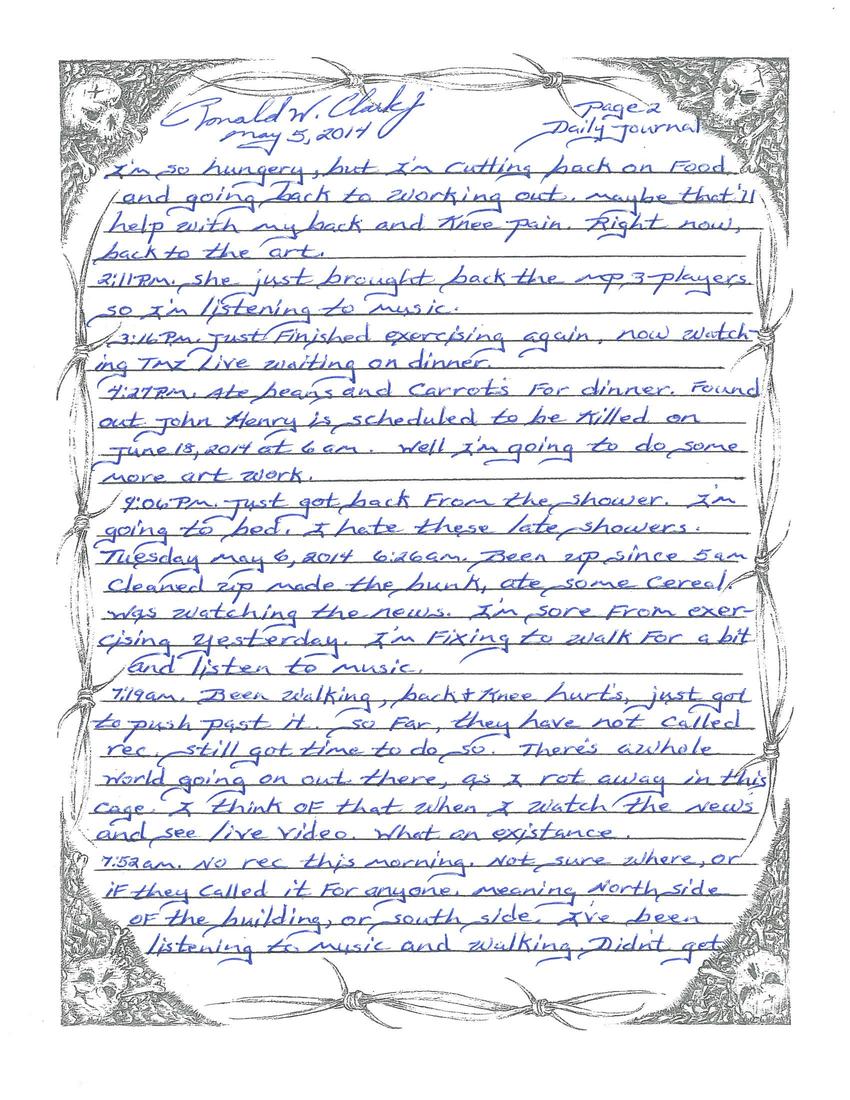 Ronald W. Clark jr
Page 2
May 5, 2014
Daily Journal
I'm so hungery, but I'm cutting back on Food
and going back to working out. maybe that'll
help with my back and Knee pain. Right now,
back to the art.
2:11PM. she just brought back the mp3-players
so I'm listening to music.
3:16PM. Just Finished exercising again, now watch-
ing TMZ Live waiting on dinner.
4:27PM. Ate beans and Carrots For dinner. Found
out John Henry is scheduled to be Killed on
June 18, 2014 at 6am. Well I'm going to do some
more art work.
9:06PM. Just got back From the shower. I'm
going to bed. I hate these late showers.
Tuesday May 6, 2014 6:26am. Been up since 5am
Cleaned up made the bunk, ate some Cereal.
Was watching the news. I'm sore From exer-
cising yesterday. I'm Fixing to walk For a bit
and listen to music.
7:19am. Been walking, back & Knee hurt's, just got
to push past it. So Far, they have not Called
rec. still got time to do so. There's a whole
World going on out there, as I rot away in this
Cage. I think OF that when I watch the News
and see live Video. What an existance.
7:52am. No rec this morning. Not sure where, or
iF they Called it For anyone. meaning North side
OF the building, or south side. I've been
listening to music and walking. Didn't get